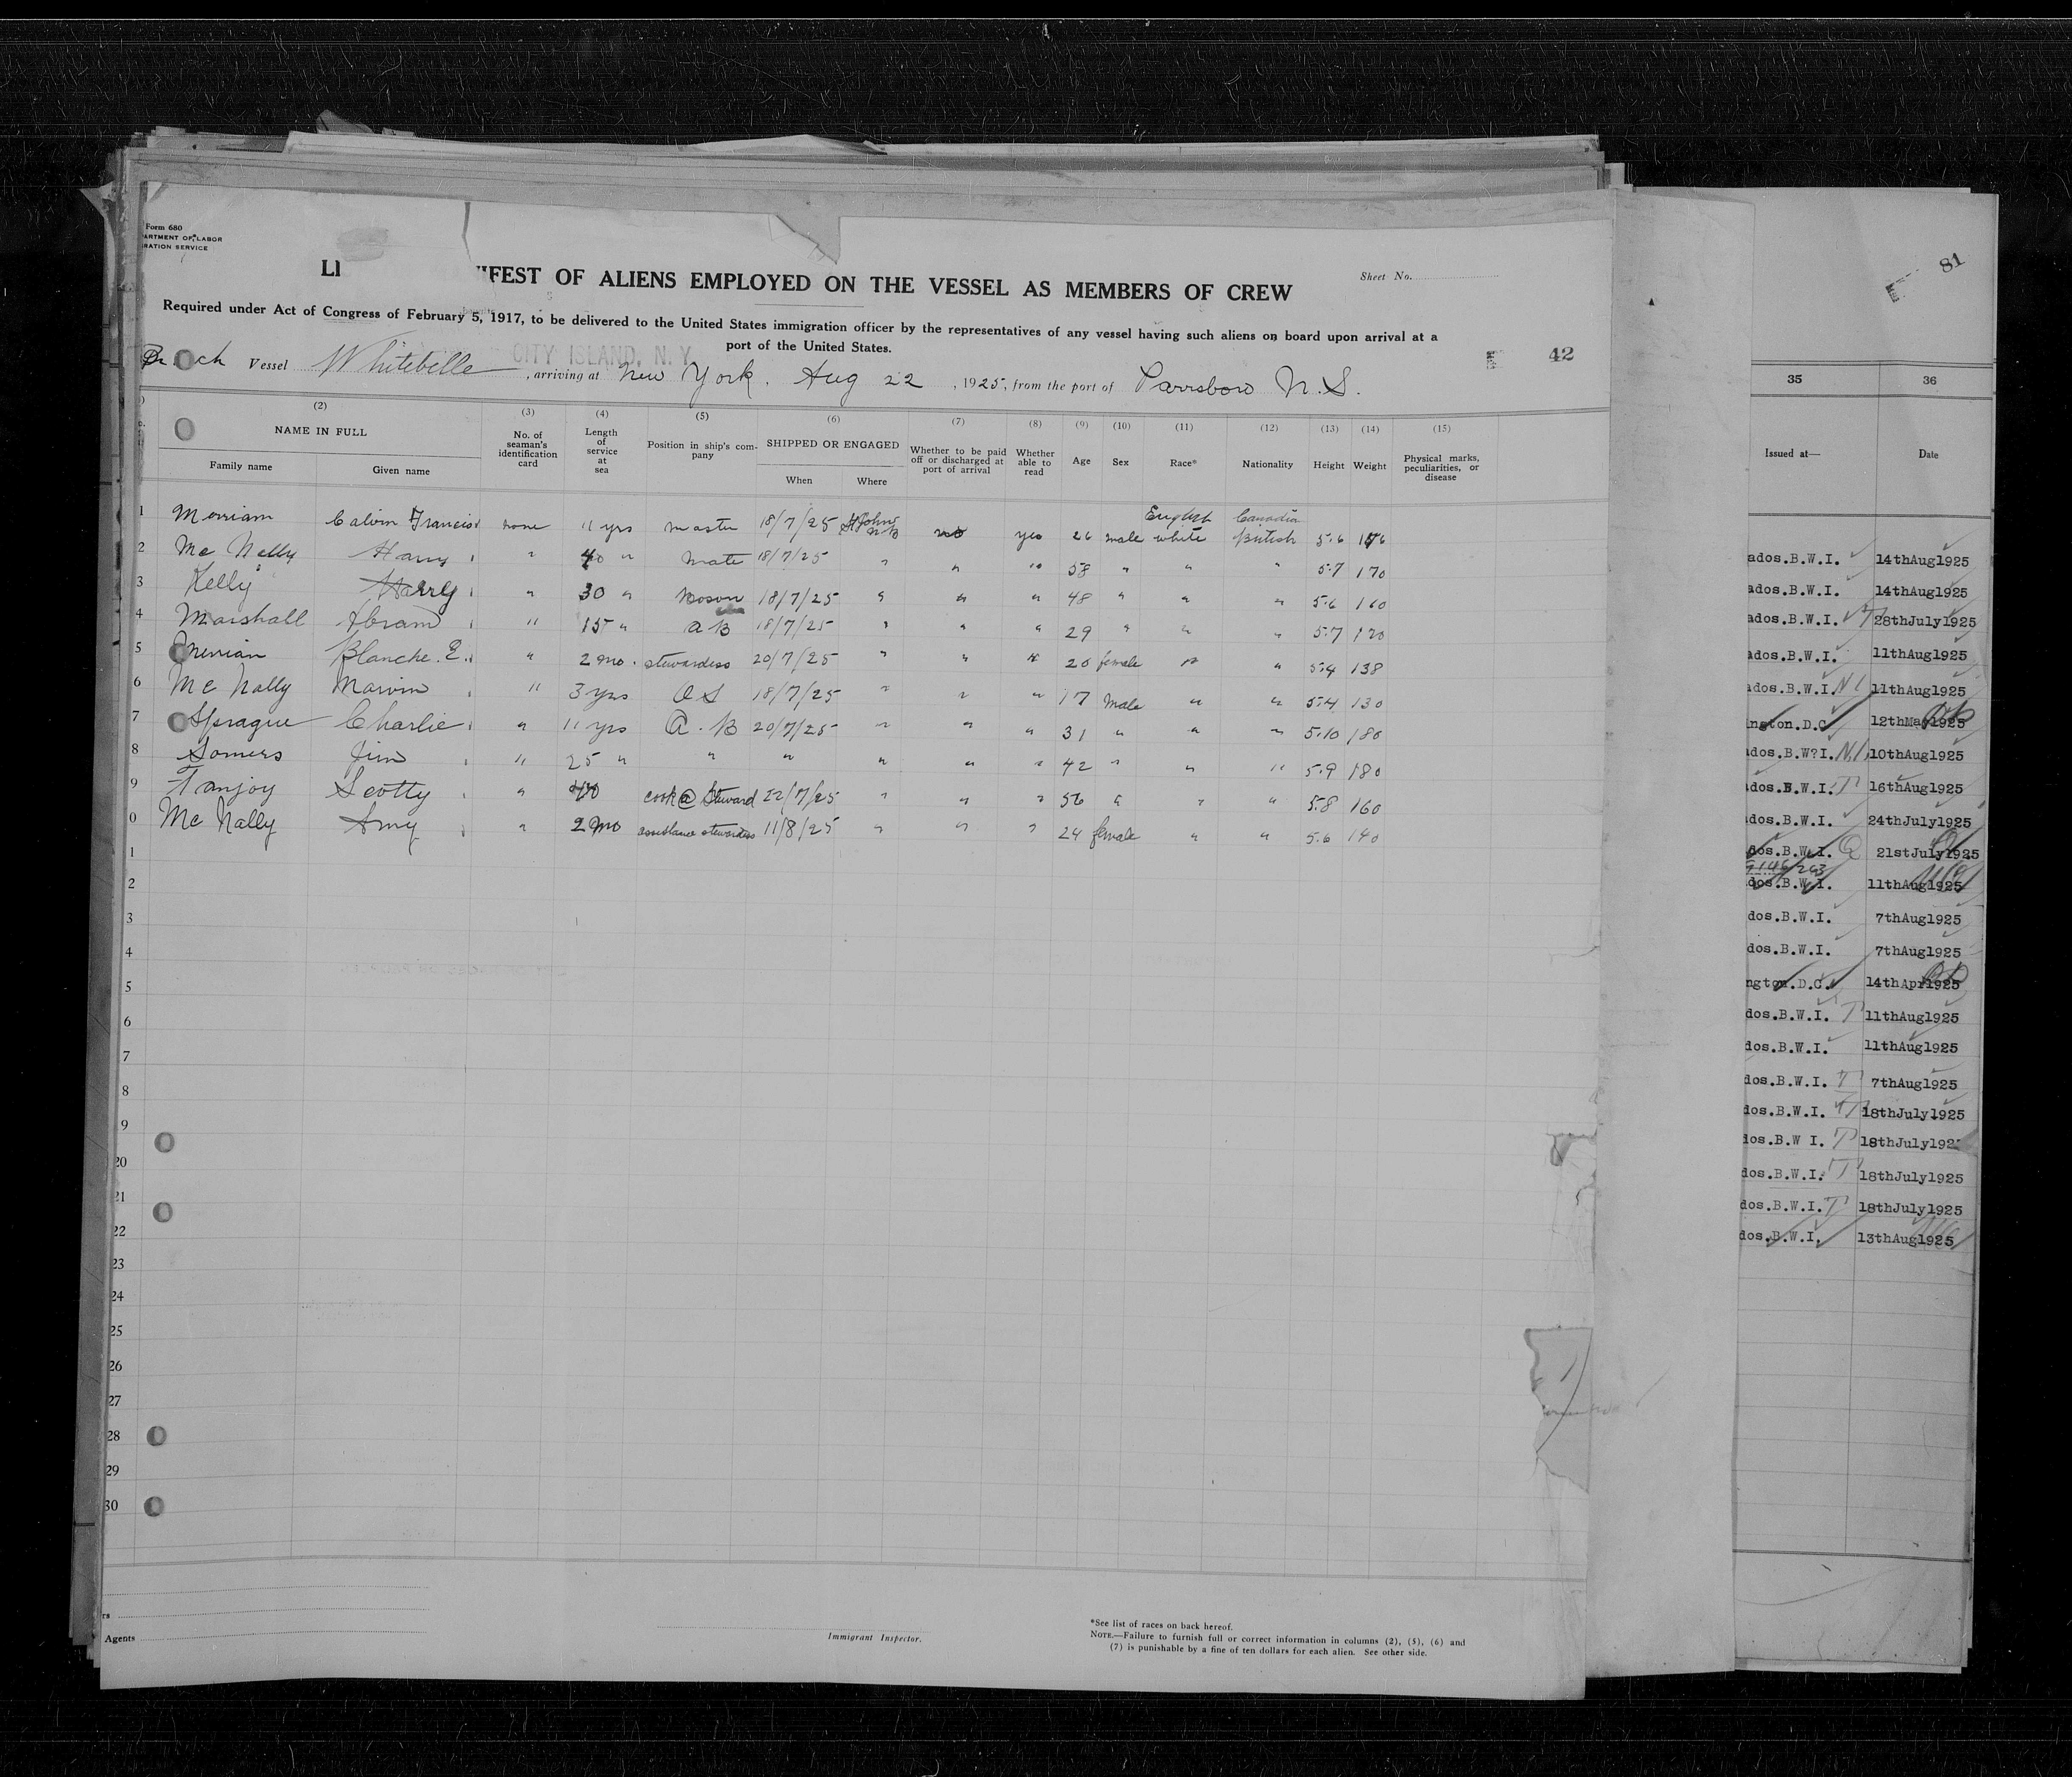 Form 680
ARTMENT OF LABOR
RATION SERVICE
LI IFEST OF ALIENS EMPLOYED ON THE VESSEL AS MEMBERS OF CREW
Sheet No.
Required under Act of Congress of February 5, 1917, to be delivered to the United States immigration officer by the representatives of any vessel having such aliens on board upon arrival at a
port of the United States.
CITY ISLAND, N. Y.
42
Vessel Whitebelle, arriving at New York. Aug 22, 1925, from the port of Parrsboro N.S.
(2) (3) (4) (5) (6) (7) (8) (9) (10) (11) (12) (13) (14) (15)
NAME IN FULL No. of seaman's identification card Length of service at sea Position in ship's company SHIPPED OR ENGAGED Whether to be paid off or discharged at port of arrival Whether able to read Age Sex Race* Nationality Height Weight Physical marks, peculiarities, or disease
Family name Given name When Where
1 Merriam Calvin Francis none 11 yrs master 18/7/25 St John N B no yes 26 male English white Canadian British 5.6 156
2 Mc Nally Harry " 40 " Mate 18/7/25 " " " 58 " " " 5.7 170
3 Kelly Harry " 30 " Boson 18/7/25 " " " 48 " " " 5.6 160
4 Marshall Abram " 15 " A B 18/7/25 " " " 29 " " " 5.7 120
5 Merriam Blanche. E. " 2 mo. stewardess 20/7/25 " " " 20 female " " 5.4 138
6 Mc Nally Marvin " 3 yrs O S 18/7/25 " " " 17 Male " " 5.4 130
7 Sprague Charlie " 11 yrs A. B 20/7/25 " " " 31 " " " 5.10 180
8 Somers Jim " 25 " " " " " " 42 " " " 5.9 180
9 Tanjoy Scotty " 40 cook @ Steward 22/7/25 " " " 56 " " " 5.8 160
0 Mc Nally Amy " 2 mo assistance stewardess 11/8/25 " " " 24 female " " 5.6 140
1
2
3
4
5
6
7
8
9
20
21
22
23
24
25
26
27
28
29
30
rs
Agents
Immigrant Inspector.
*See list of races on back hereof.
NOTE.—Failure to furnish full or correct information in columns (2), (5), (6) and
(7) is punishable by a fine of ten dollars for each alien. See other side.
81
35 36
Issued at— Date
ados.B.W.I. 14thAug1925
ados.B.W.I. 14thAug1925
ados.B.W.I. 28thJuly1925
ados.B.W.I. 11thAug1925
ados.B.W.I. 11thAug1925
ington.D.C. 12thMay1925
ados.B.W?I. 10thAug1925
ados.B.W.I. T 16thAug1925
dos.B.W.I. 24thJuly1925
dos.B.W.I. 21stJuly1925
dos.B.W.I. 11thAug1925
dos.B.W.I. 7thAug1925
dos.B.W.I. 7thAug1925
ngton.D.C. 14thApr1925
dos.B.W.I. T 11thAug1925
dos.B.W.I. 11thAug1925
dos.B.W.I. T 7thAug1925
dos.B.W.I. T 18thJuly1925
dos.B.W I. T 18thJuly192
dos.B.W.I. T 18thJuly1925
dos.B.W.I. T 18thJuly1925
dos.B.W.I. 13thAug1925